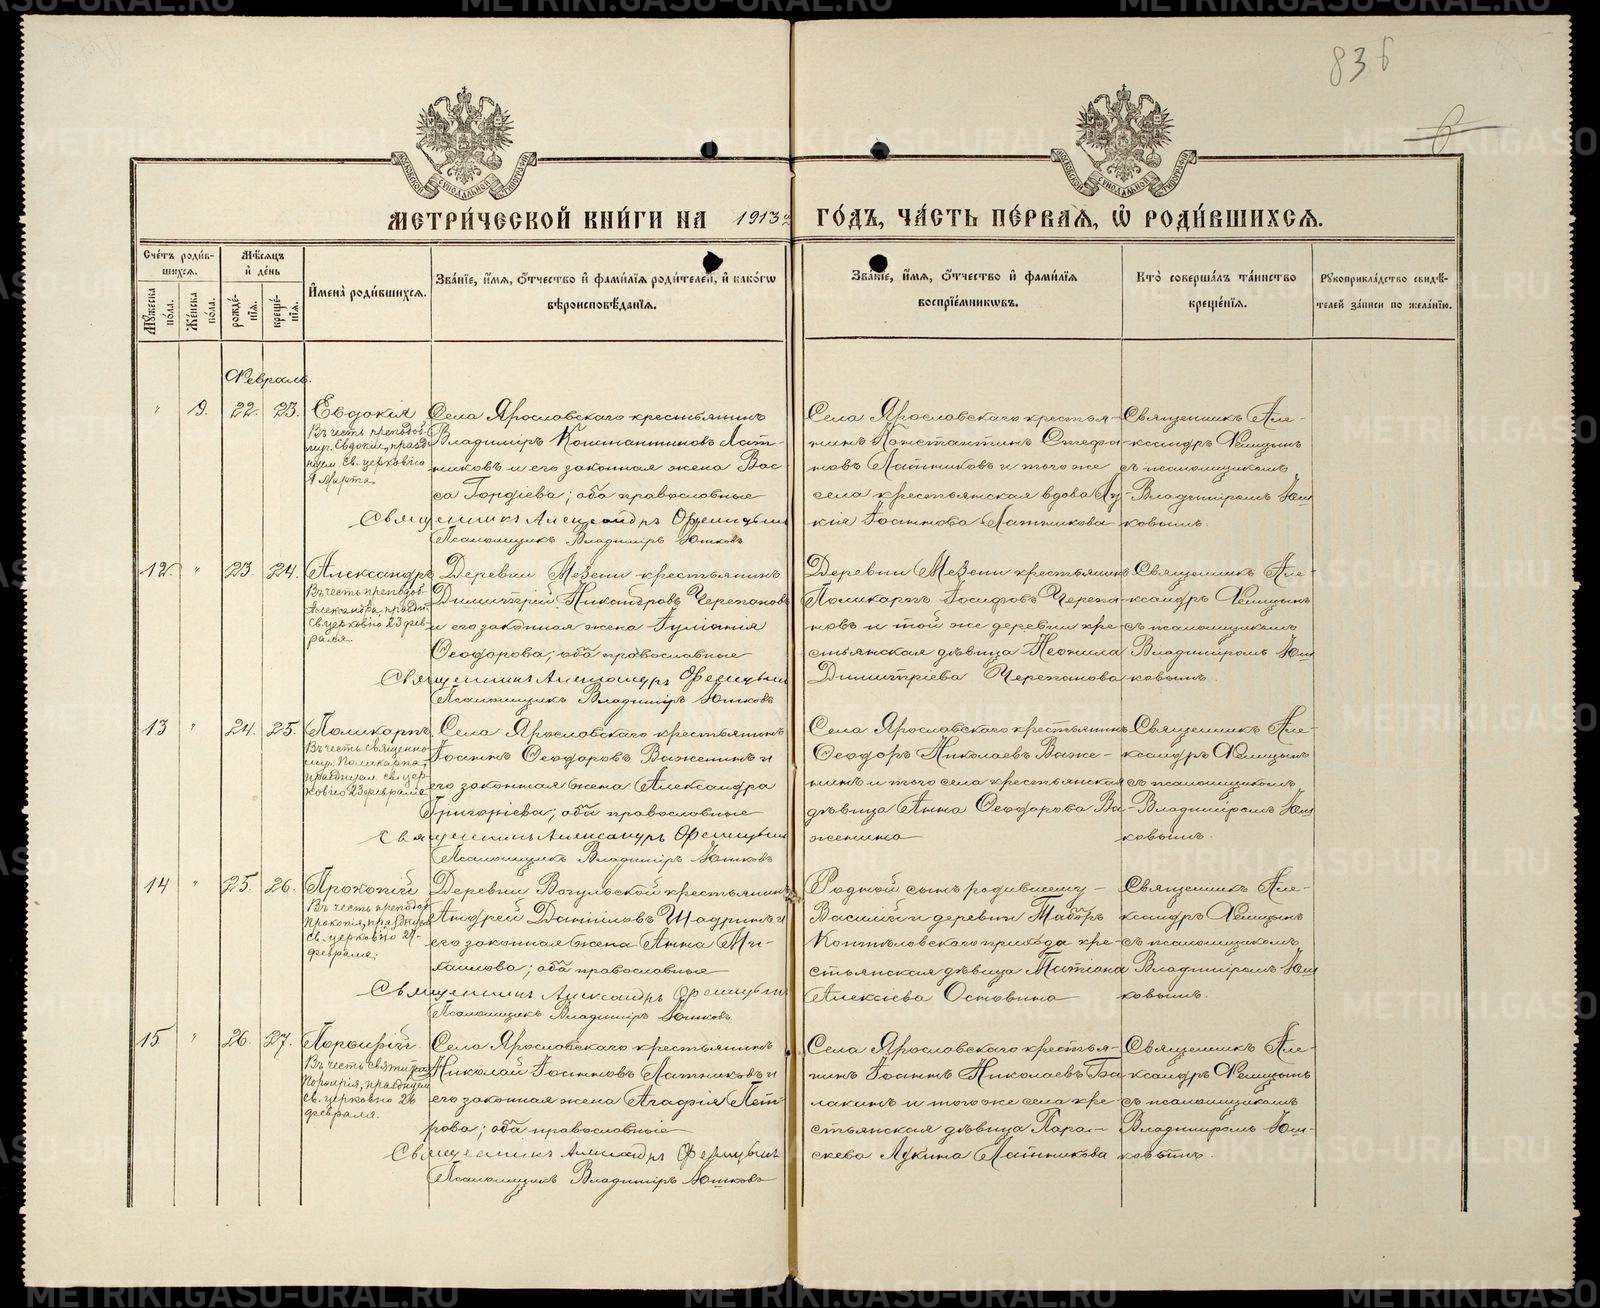 836
6
МОСКОВСКОЙ СѴНОДАЛЬНОЙ ТИПОГРАФІИ
МОСКОВСКОЙ СѴНОДАЛЬНОЙ ТИПОГРАФІИ
МЕТРИ́ЧЕСКОЙ КНИ́ГИ НА 1913 й ГО́ДЪ, ЧА́СТЬ ПЕ́РВАѦ, Ѡ҆ РОДИ́ВШИХСѦ.
Сче́тъ роди́вшихсѧ.
Мꙋ́жеска по́ла.
Же́нска по́ла.
Мѣ́сѧцъ и҆ де́нь
рожде́нїѧ.
креще́нїѧ.
И҆мена̀ роди́вшихсѧ.
Зва́нїе, и҆́мѧ, ѻ҆́тчество и҆ фами́лїѧ роди́телей, и҆ како́гѡ
вѣроисповѣ́данїѧ.
Зва́нїе, и҆́мѧ, ѻ҆́тчество и҆ фами́лїѧ
воспрїе́мникѡвъ.
Кто̀ соверша́лъ та́инство
креще́нїѧ.
Рꙋкоприкла́дство свидѣ́-
телей за́писи по жела́нїю.
Февраль.
" 9. 22. 23. Евдокія
Въ честь преподоб.
муч. Евдокіи, празд-
нуем. Св. церковію
1 Марта
Села Ярославскаго крестьянинъ
Владиміръ Константиновъ Лат-
никовъ и его законная жена Вас-
са Гордіева; оба православные
Священникъ Александръ Фелицынъ
Псаломщикъ Владиміръ Юшковъ
Села Ярославскаго крестья-
нинъ Константинъ Стефа-
новъ Латниковъ и того же
села крестьянская вдова Лу-
кія Іоаннова Латникова
Священникъ Але-
ксандръ Фелицынъ
съ псаломщикомъ
Владиміромъ Юш
ковымъ.
12. " 23. 24. Александръ
Въ честь преподоб.
Александра, праздн.
св. церковію 23 фев-
раля.
Деревни Мезени крестьянинъ
Димитрій Никандровъ Черепановъ
и его законная жена Іуліанія
Ѳеодорова; оба православные
Священникъ Александръ Фелицынъ
Псаломщикъ Владиміръ Юшковъ
Деревни Мезени крестьянинъ
Поликарпъ Іосифовъ Черепа-
новъ и той же деревни кре-
стьянская дѣвица Неонила
Димитріева Черепанова
Священникъ Але-
ксандръ Фелицынъ
съ псаломщикомъ
Владиміромъ Юш
ковымъ.
13 " 24. 25. Поликарпъ
Въ честь священно
муч. Поликарпа
празднуем. св. цер-
ковію 23 февраля
Села Ярославскаго крестьянинъ
Іоаннъ Ѳеодоровъ Важенинъ и
его законная жена Александра
Григоріева; оба православные
Священникъ Александръ Фелицынъ
Псаломщикъ Владиміръ Юшковъ
Села Ярославскаго крестьянинъ
Ѳеодоръ Николаевъ Важе-
нинъ и того села крестьянская
дѣвица Анна Ѳеодорова Ва-
женина
Священникъ Але-
ксандръ Фелицынъ
съ псаломщикомъ
Владиміромъ Юш
ковымъ.
14 " 25. 26. Прокопій
Въ честь преподоб.
Прокопія, празднуем.
Св. церковію 27-
февраля.
Деревни Вогульской крестьянинъ
Андрей Даніиловъ Шадринъ и
его законная жена Анна Ми-
хаилова; оба православные
Священникъ Александръ Фелицынъ
Псаломщикъ Владиміръ Юшковъ
Родной сынъ родившему
Василій и деревни Таборъ
Коптѣловскаго прихода кре-
стьянская дѣвица Татіана
Алексіева Останина
Священникъ Але-
ксандръ Фелицынъ
съ псаломщикомъ
Владиміромъ Юш
ковымъ.
15 " 26. 27. Порфирій
Въ честь святит.
Порфирія, празднуем
св. церковію 26
февраля.
Села Ярославскаго крестьянинъ
Николай Іоанновъ Латниковъ и
его законная жена Агафія Пет-
рова; оба православные
Священникъ Александръ Фелицынъ
Псаломщикъ Владиміръ Юшковъ
Села Ярославскаго крестья-
нинъ Іоаннъ Николаевъ Ба
лакинъ и того же села кре-
стьянская дѣвица Пара-
скева Лукина Латникова
Священникъ Але-
ксандръ Фелицынъ
съ псаломщикомъ
Владиміромъ Юш-
ковымъ.
METRIKI.GASO-URAL.RU